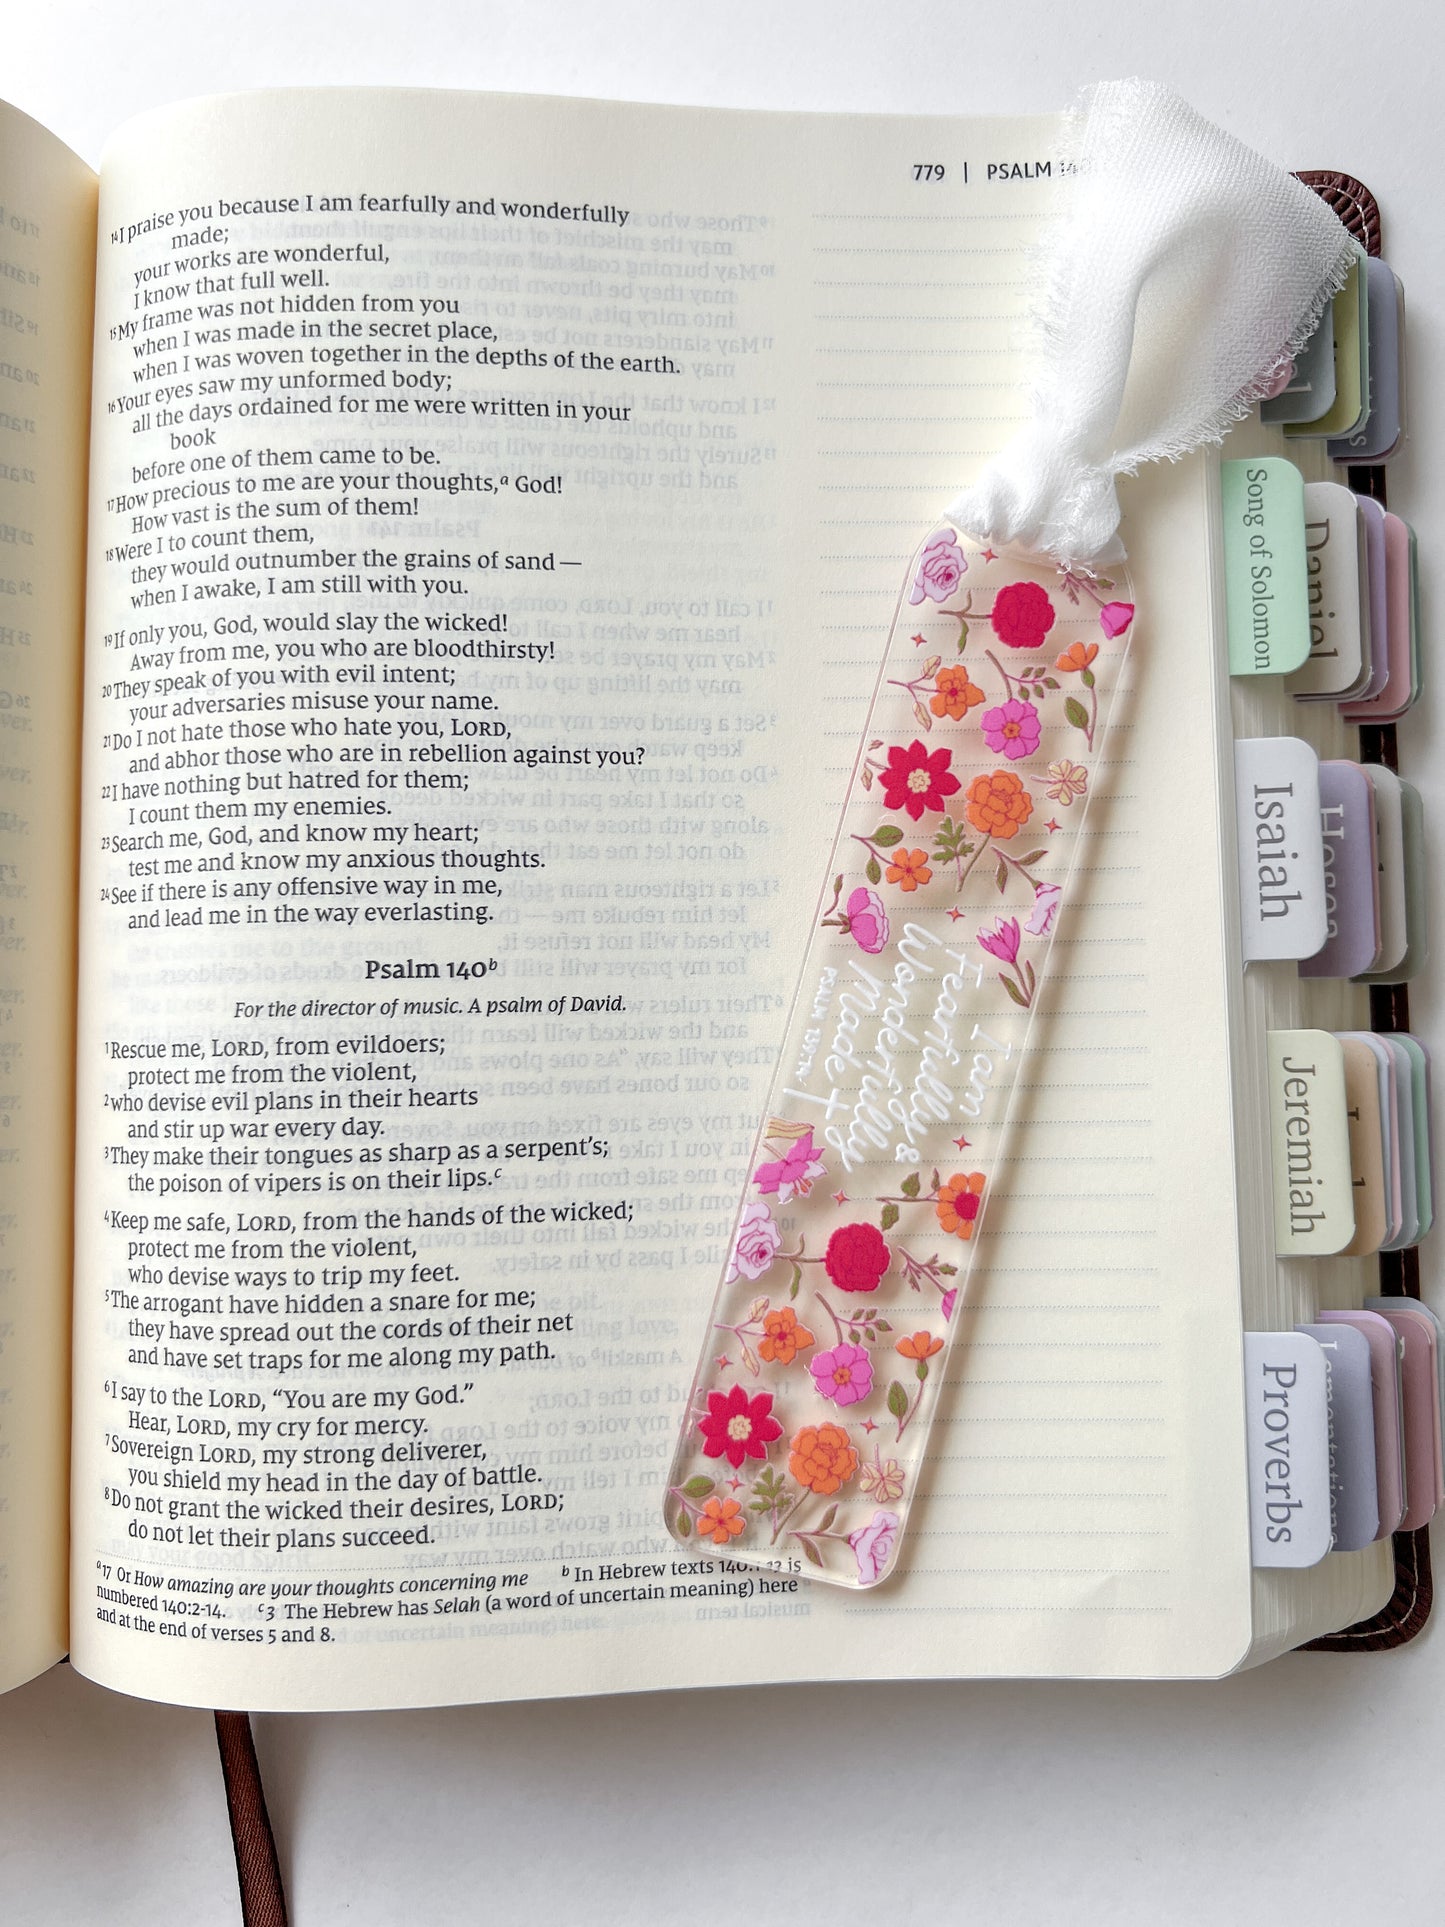 779 | PSALM 140
14I praise you because I am fearfully and wonderfully
made;
your works are wonderful,
I know that full well.
15My frame was not hidden from you
when I was made in the secret place,
when I was woven together in the depths of the earth.
16Your eyes saw my unformed body;
all the days ordained for me were written in your
book
before one of them came to be.
17How precious to me are your thoughts,a God!
How vast is the sum of them!
18Were I to count them,
they would outnumber the grains of sand —
when I awake, I am still with you.
19If only you, God, would slay the wicked!
Away from me, you who are bloodthirsty!
20They speak of you with evil intent;
your adversaries misuse your name.
21Do I not hate those who hate you, LORD,
and abhor those who are in rebellion against you?
22I have nothing but hatred for them;
I count them my enemies.
23Search me, God, and know my heart;
test me and know my anxious thoughts.
24See if there is any offensive way in me,
and lead me in the way everlasting.
Psalm 140b
For the director of music. A psalm of David.
1Rescue me, LORD, from evildoers;
protect me from the violent,
2who devise evil plans in their hearts
and stir up war every day.
3They make their tongues as sharp as a serpent's;
the poison of vipers is on their lips.c
4Keep me safe, LORD, from the hands of the wicked;
protect me from the violent,
who devise ways to trip my feet.
5The arrogant have hidden a snare for me;
they have spread out the cords of their net
and have set traps for me along my path.
6I say to the LORD, “You are my God.”
Hear, LORD, my cry for mercy.
7Sovereign LORD, my strong deliverer,
you shield my head in the day of battle.
8Do not grant the wicked their desires, LORD;
do not let their plans succeed.
a17 Or How amazing are your thoughts concerning me b In Hebrew texts 140:1-13 is
numbered 140:2-14. c3 The Hebrew has Selah (a word of uncertain meaning) here
and at the end of verses 5 and 8.
I am
fearfully &
wonderfully
made
PSALM 139:14
Song of Solomon
Daniel
Isaiah
Hosea
Jeremiah
Proverbs
Lamentations